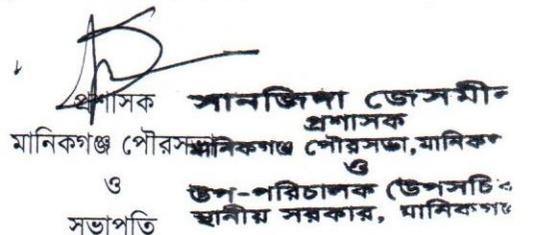 প্রশাসক
মানিকগঞ্জ পৌরসভা
ও
সভাপতি
সানজিদা জেসমীন
প্রশাসক
মানিকগঞ্জ পৌরসভা, মানিকগ
ও
উপ-পরিচালক (উপসচি
স্থানীয় সরকার, মানিকগঞ্জ